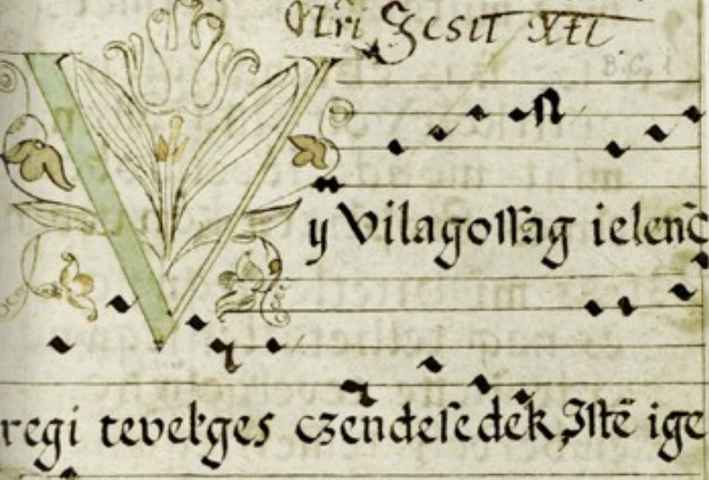 Nr̃i Gesu XPI
B.C. 1
Vy Vilagossag ielenc̄
regi tevelges czendesedek, Istē ige